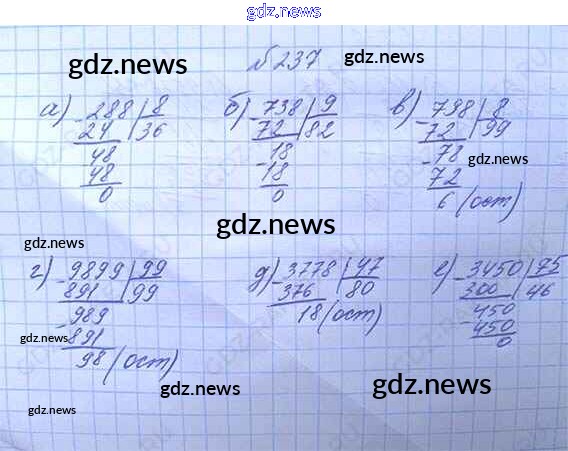 gdz.news
№237
gdz.news
gdz.news
а) 288 | 8
24 | 36
48
48
0
б) 738 | 9
72 | 82
18
18
0
в) 798 | 8
72 | 99
78
72
6 (ост)
gdz.news
gdz.news
gdz.news
г) 9899 | 99
891 | 99
989
891
98 (ост)
д) 3778 | 47
376 | 80
18 (ост)
е) 3450 | 75
300 | 46
450
450
0
gdz.news
gdz.news
gdz.news
gdz.news